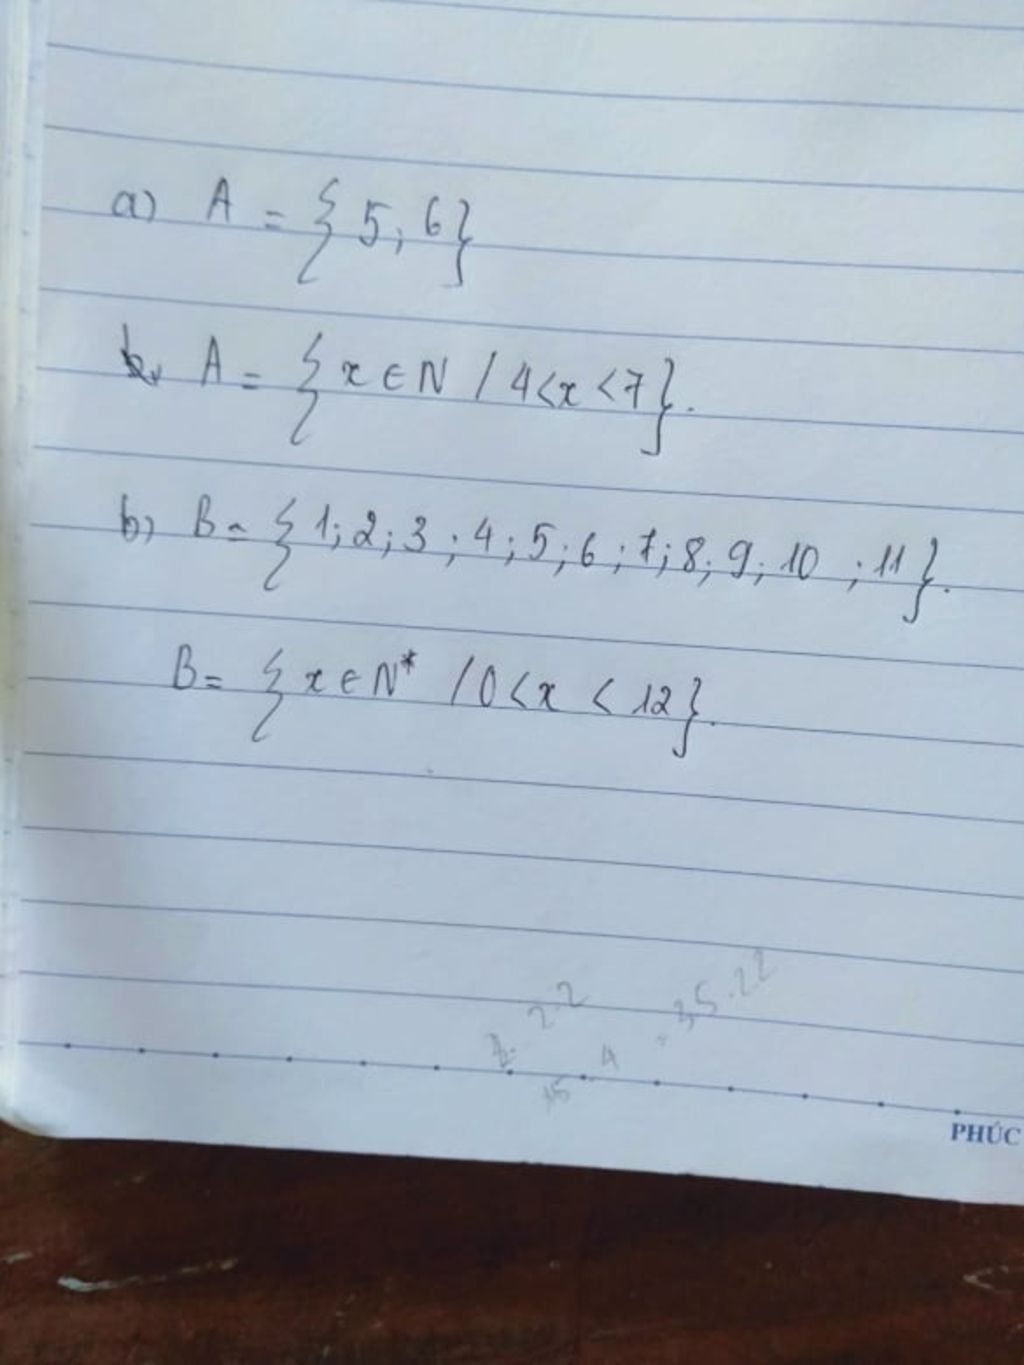 a) A = { 5, 6}
A = { x ∈ N / 4<x <7}.
b) B= { 1; 2; 3 ; 4; 5; 6; 7; 8; 9; 10 ; 11}.
B= { x ∈ N* / 0<x < 12}.
2.2
35.22
4
PHÚC